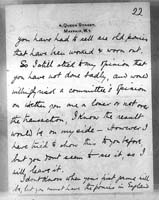 22
4, QUEEN STREET,
MAYFAIR, W.1.
you have had to sell are old ponies
that have been used & worn out.
So I still stick to my opinion that
you have not done badly, and were
willingly a committee's opinion
on whether you are a loser or not over
the transaction, I know the result
would be on my side – However I
have tried to show this to you before
but you don't seem to see it, so I
will leave it.
I don't know when your first game will
be, but you must have the ponies in England